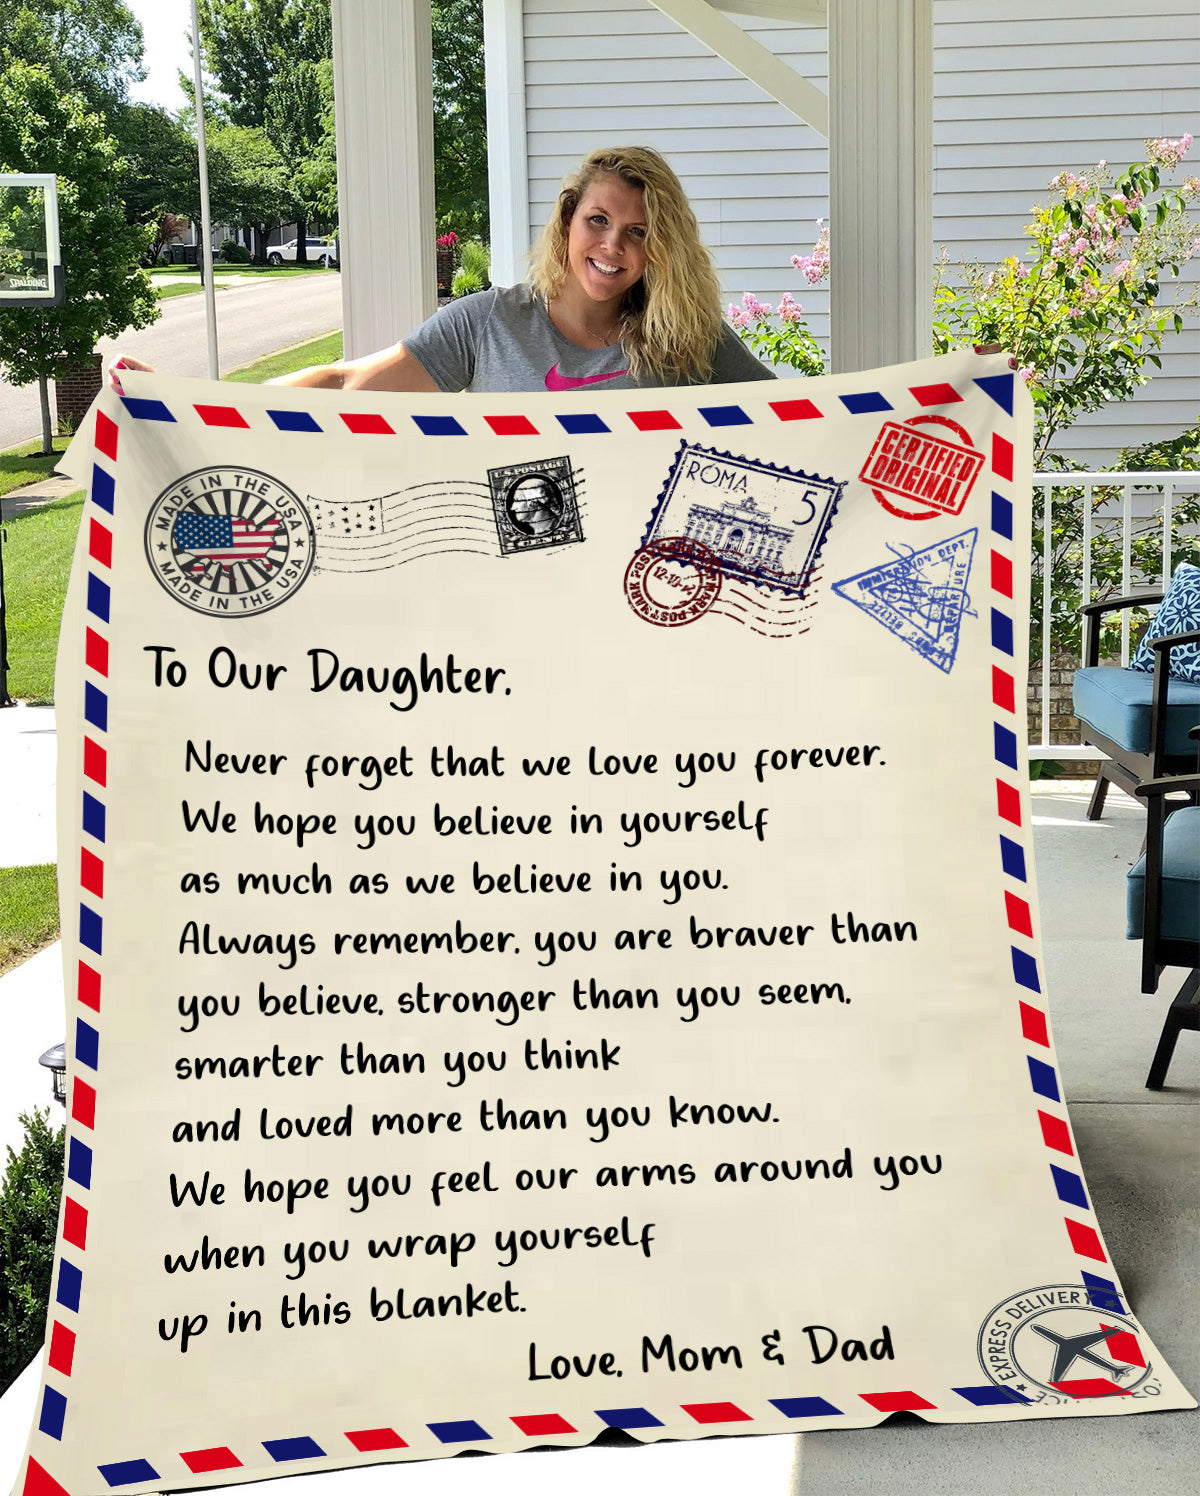 SPALDING
MADE IN THE USA
MADE IN THE USA
U.S. POSTAGE
ROMA
5
CERTIFIED
ORIGINAL
IMMIGRATION DEPT.
DEPARTURE
BELIZE
To Our Daughter,
Never forget that we love you forever.
We hope you believe in yourself
as much as we believe in you.
Always remember, you are braver than
you believe, stronger than you seem,
smarter than you think
and loved more than you know.
We hope you feel our arms around you
when you wrap yourself
up in this blanket.
Love, Mom & Dad
EXPRESS DELIVERY